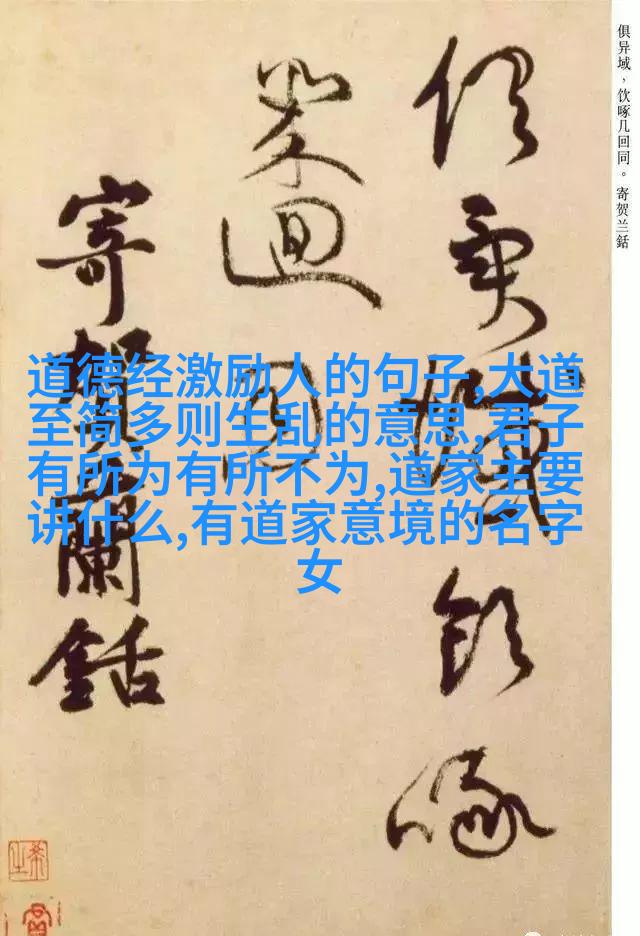 俱异域，饮啄几回同。寄贺兰銛
俱異域飲啄
幾迴同
寄賀蘭銛
道德经激励人的句子,大道
至简多则生乱的意思,君子
有所为有所不为,道家主要
讲什么,有道家意境的名字
女